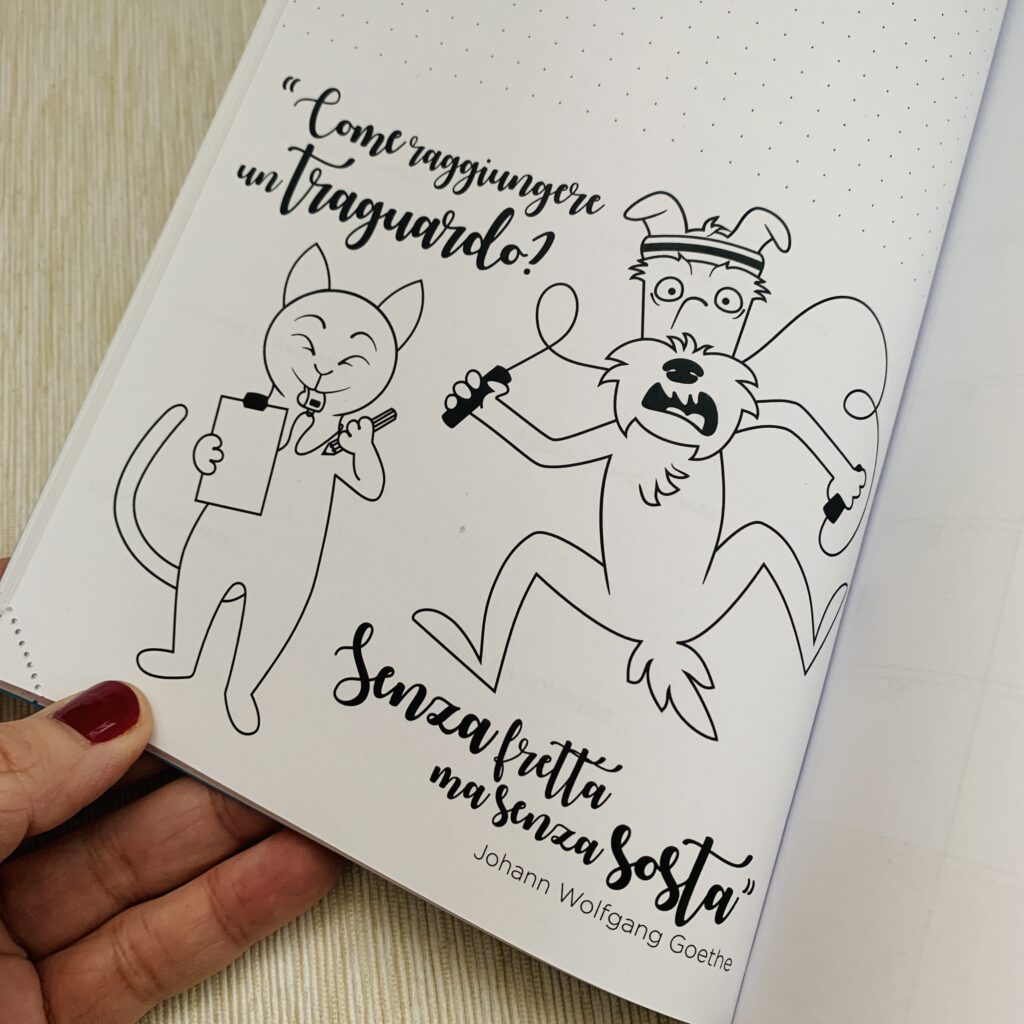 “Come raggiungere
un traguardo?
Senza fretta
ma senza sosta”
Johann Wolfgang Goethe